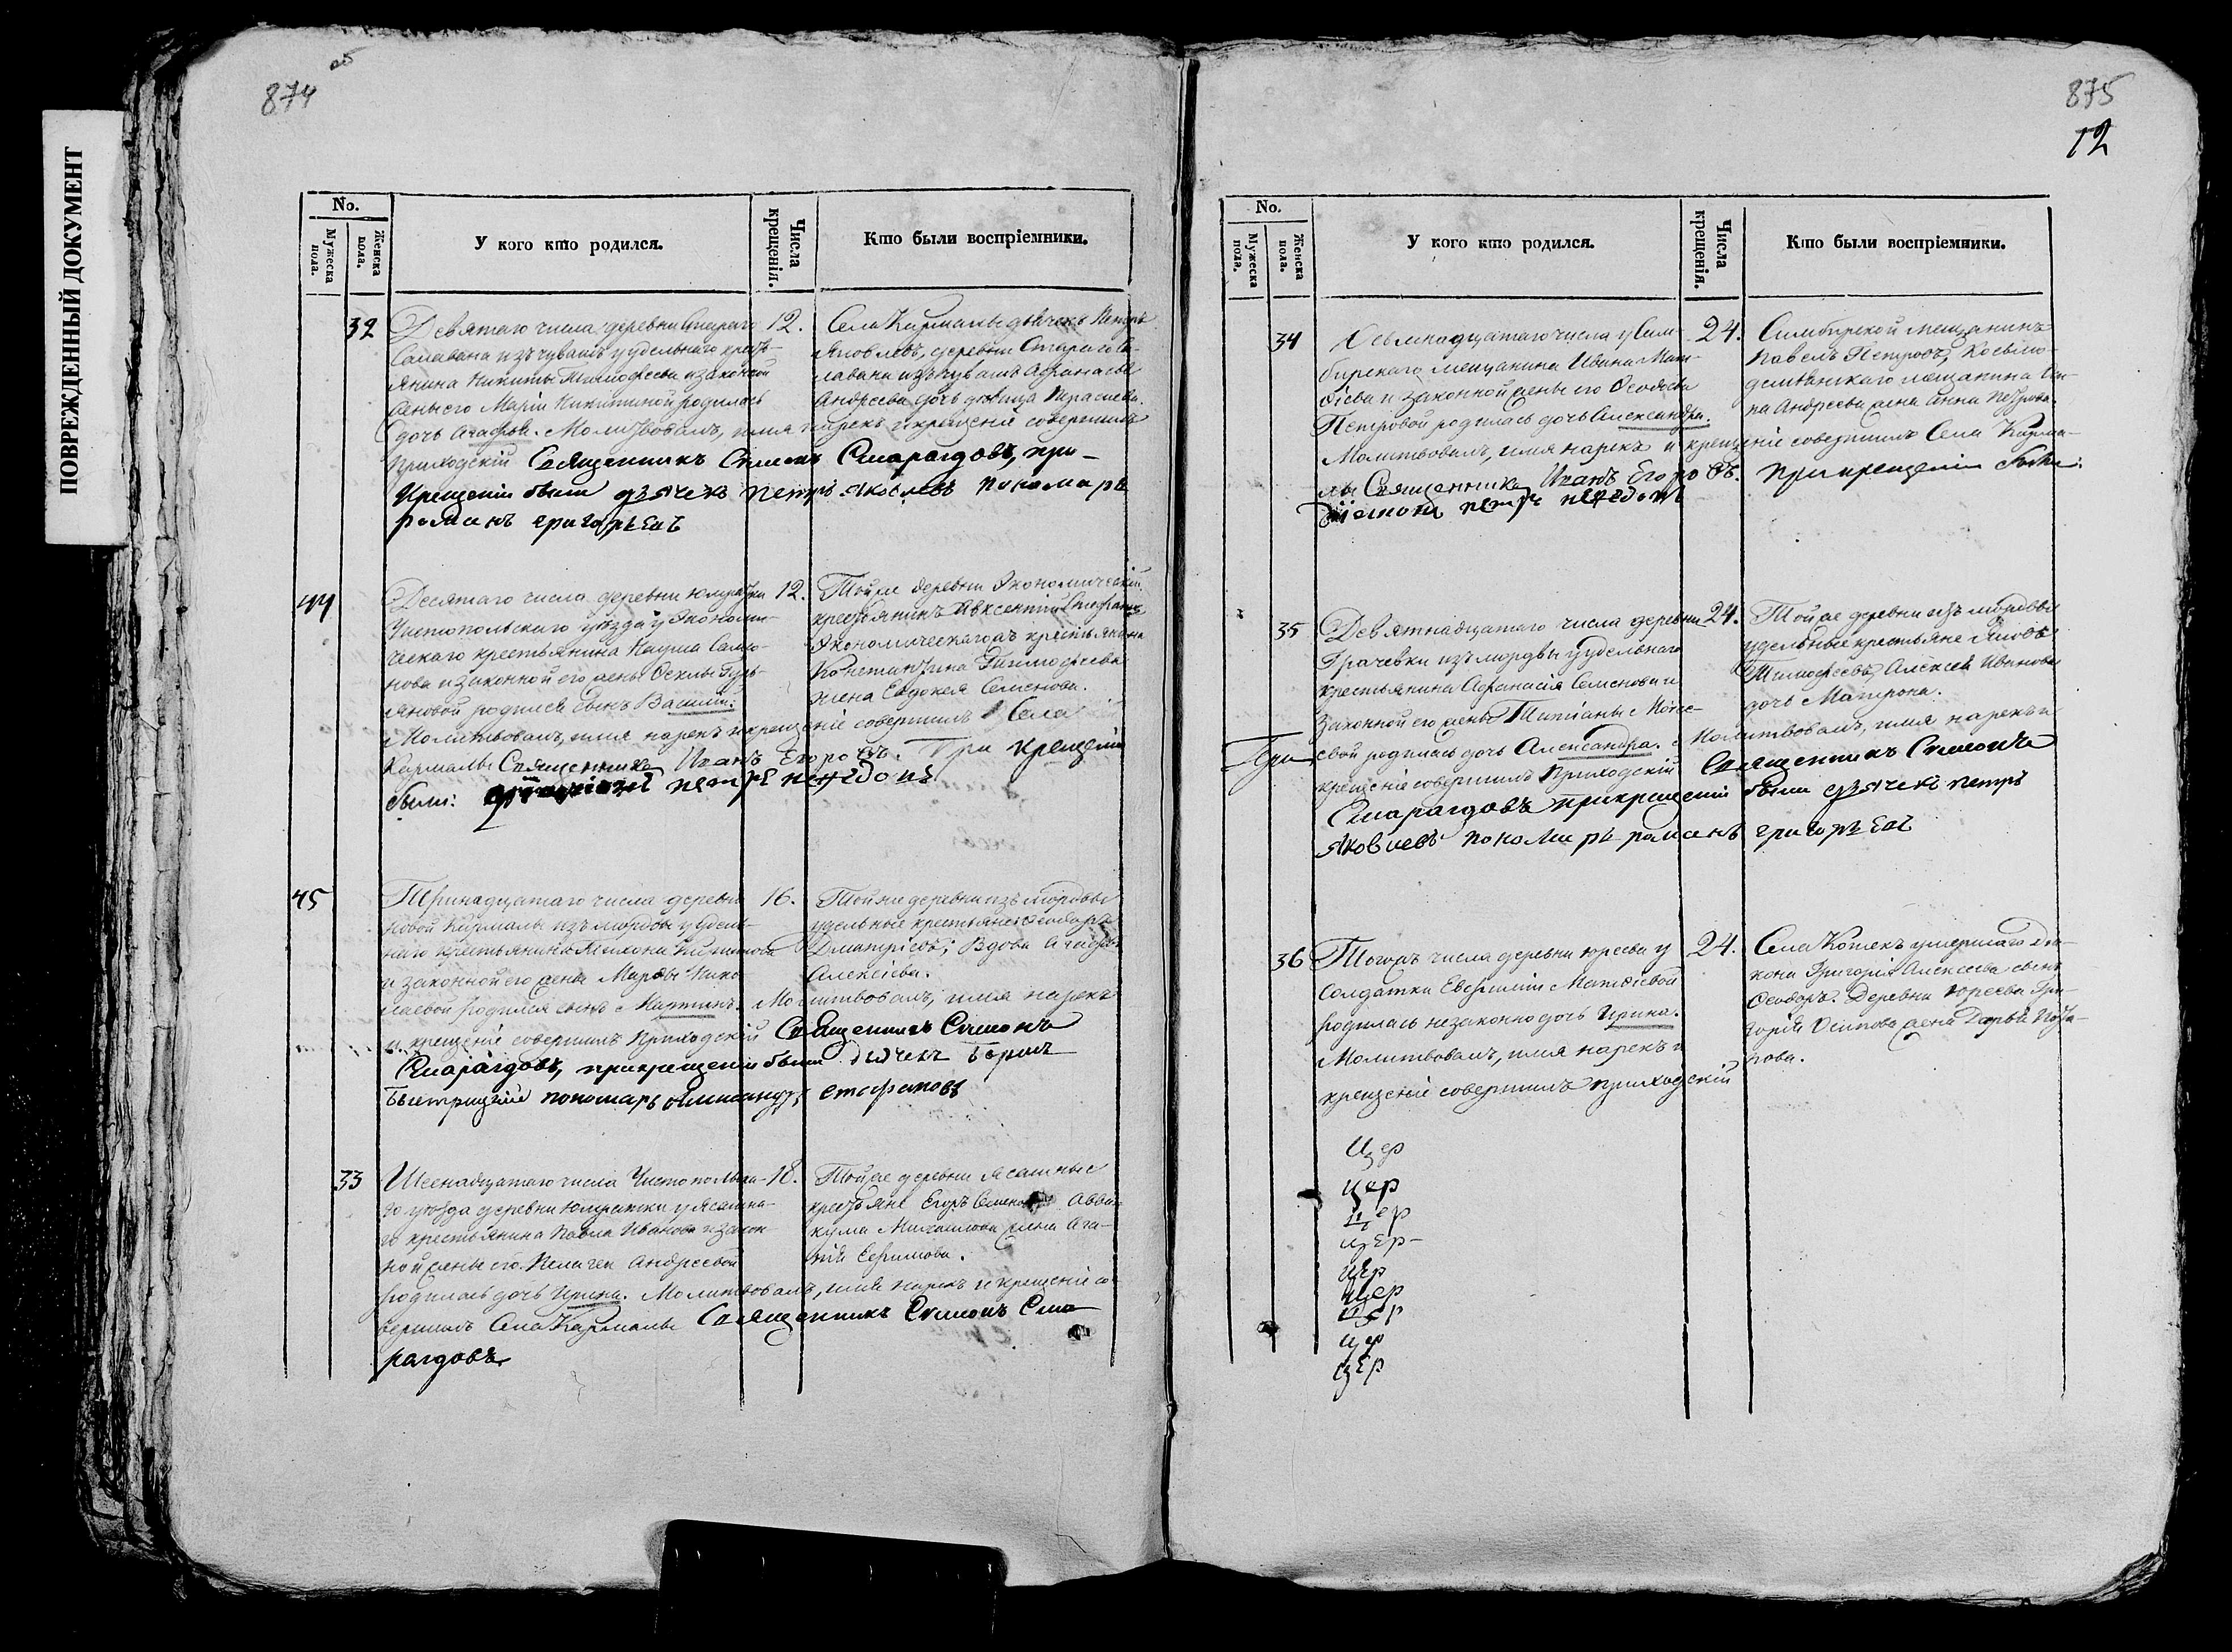 ПОВРЕЖДЕННЫЙ ДОКУМЕНТ
874 об
No.
Мужеска пола.
Женска пола.
У кого кто родился.
Числа крещенія.
Кто были воспріемники.
32
Девятаго числа деревни Стараго
Салавана изъ чувашъ у удельнаго кресть-
янина Никиты Тимофеева и законной
жены его Маріи Никитиной родилась
дочь Агафья. Молитвовалъ, имя нарекъ и крещеніе совершилъ
Приходскій Священникъ Симеонъ Смарагдовъ, при-
крещеніи были дьячекъ петръ Яковлевъ пономарь
романъ григорьевъ
12.
Села Кармалы дьячекъ Петръ
Яковлевъ, деревни Стараго Са-
лавана изъ чувашъ Афанасья
Андреева дочь девица Параскева.
44
Десятаго числа деревни Юмратки
Чистопольскаго уезда у Экономи-
ческаго крестьянина Наума Само-
нова и законной его жены Феклы Гурь-
яновой родился сынъ Василій.
Молитвовалъ, имя нарекъ и крещеніе совершилъ Села
Кармалы Священникъ Иванъ Егоровъ. При крещеніи
были: петръ
12.
Той же деревни Экономическій
крестьянинъ Авксентій Стефановъ
Экономическаго крестьянина
Константина Тимофеева
жена Евдокея Семенова.
45
Тринадцатаго числа деревни
новой Кармалы изъ мордвы у удель-
наго крестьянина Тихона
и законной его жены Марфы Нико-
лаевой родился сынъ Мартинъ. Молитвовалъ, имя нарекъ
и крещеніе совершилъ Приходскій Священникъ Симеонъ
Смарагдовъ, при крещеніи были дьячекъ Борисъ
Быстрицкій пономарь Александръ стефановъ
16.
Той же деревни изъ мордвы
удельные крестьяне Феодоръ
Дмитріевъ, Вдова Агафья
Алексіева.
33
Шеснадцатаго числа Чистопольска-
го уезда деревни Юмратки у ясашна-
го крестьянина Павла Иванова и закон
ной жены его Пелагеи Андреевой
родилась дочь Ирина. Молитвовалъ, имя нарекъ и крещеніе со-
вершилъ Села Кармалы Священникъ Симеонъ Сма-
рагдовъ
18.
Той же деревни ясашные
крестьяне Егоръ Семеновъ Авва-
кума Михайлова жена Ага-
фія Ефимова.
875
12
No.
Мужеска пола.
Женска пола.
У кого кто родился.
Числа крещенія.
Кто были воспріемники.
34
Осьмнадцатаго числа у Сим-
бирскаго мещанина Ивана Мат-
фіева и законной жены его Феодосьи
Петровой родилась дочь Александра.
Молитвовалъ, имя нарекъ и крещеніе совершилъ Села Карма-
лы Священникъ Иванъ Егоровъ. При крещеніи были:
петръ
24.
Симбирской мещанинъ
Павелъ Петровъ, Козьмо-
демьянскаго мещанина
на Андреева жена Анна Петрова.
35
Девятнадцатаго числа деревни
Грачевки изъ мордвы у удельнаго
крестьянина Афанасія Семенова и
законной его жены Татіаны Моисе-
евой родилась дочь Александра. Молитвовалъ, имя нарекъ и
крещеніе совершилъ Приходскій Священникъ Симеонъ
Смарагдовъ при крещеніи были дьячекъ петръ
Яковлевъ пономарь романъ григорьевъ
24.
Той же деревни изъ мордвы
удельные крестьяне Яковъ
Тимофеевъ, Алексея Иванова
дочь Матрона.
36
Тогожъ числа деревни Юреева у
солдатки Евфиміи Матфіевой
родилась незаконно дочь Ирина.
Молитвовалъ, имя нарекъ и
крещеніе совершилъ приходскій
24.
Села Кошекъ умершаго Діа-
кона Григорія Алексеева сынъ
Феодоръ. Деревни Юреева Гри-
горія Осипова жена Дарья
пова.
Цер
цер
Цер
цер-
цер
Цер
Цер
цер
цер